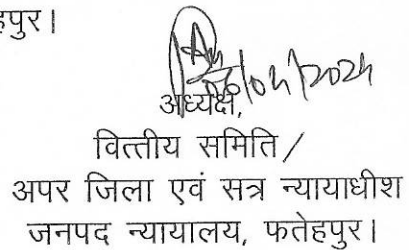 हपुर।
06/04/2024
अध्यक्ष,
वित्तीय समिति/
अपर जिला एवं सत्र न्यायाधीश
जनपद न्यायालय, फतेहपुर।